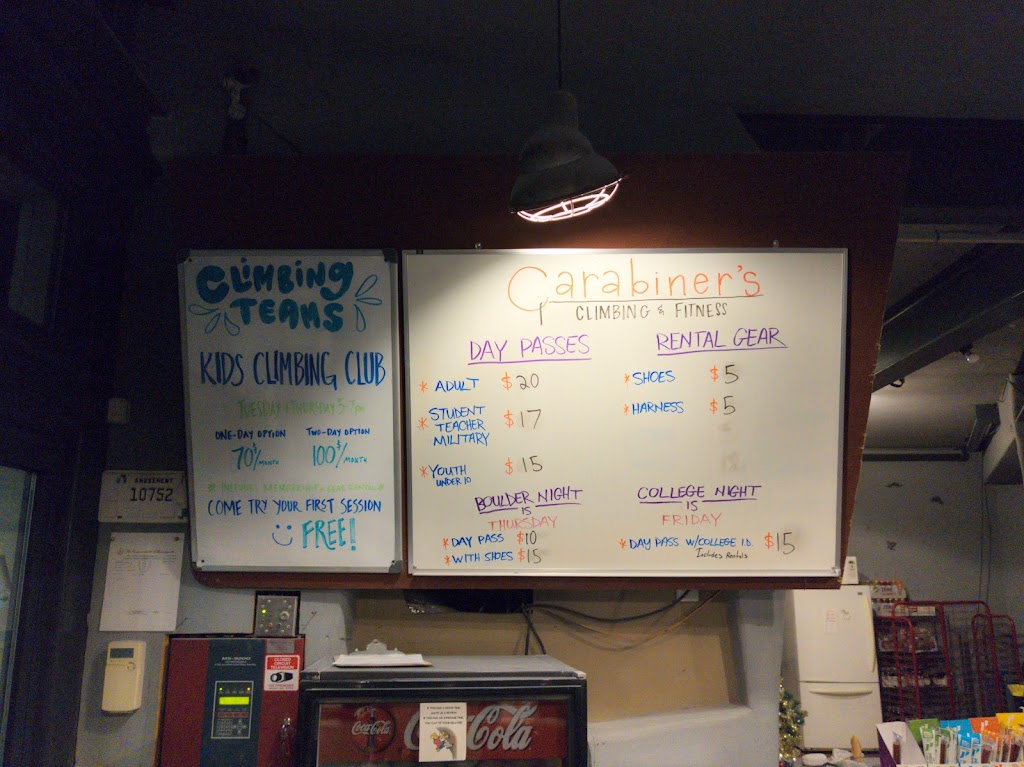 CLIMBING
TEAMS
KIDS CLIMBING CLUB
TUESDAY & THURSDAY 5-7pm
ONE-DAY OPTION TWO-DAY OPTION
70$/MONTH 100$/MONTH
COME TRY YOUR FIRST SESSION
FREE!
Carabiner's
CLIMBING & FITNESS
DAY PASSES
* ADULT $20
* STUDENT
TEACHER
MILITARY $17
* YOUTH
UNDER 10 $15
RENTAL GEAR
* SHOES $5
* HARNESS $5
BOULDER NIGHT
IS
THURSDAY
* DAY PASS $10
* WITH SHOES $15
COLLEGE NIGHT
IS
FRIDAY
* DAY PASS W/COLLEGE I.D. $15
Includes Rentals
AMUSEMENT
10752
CLOSED
CIRCUIT
TELEVISION
Coca-Cola
Coca-Cola